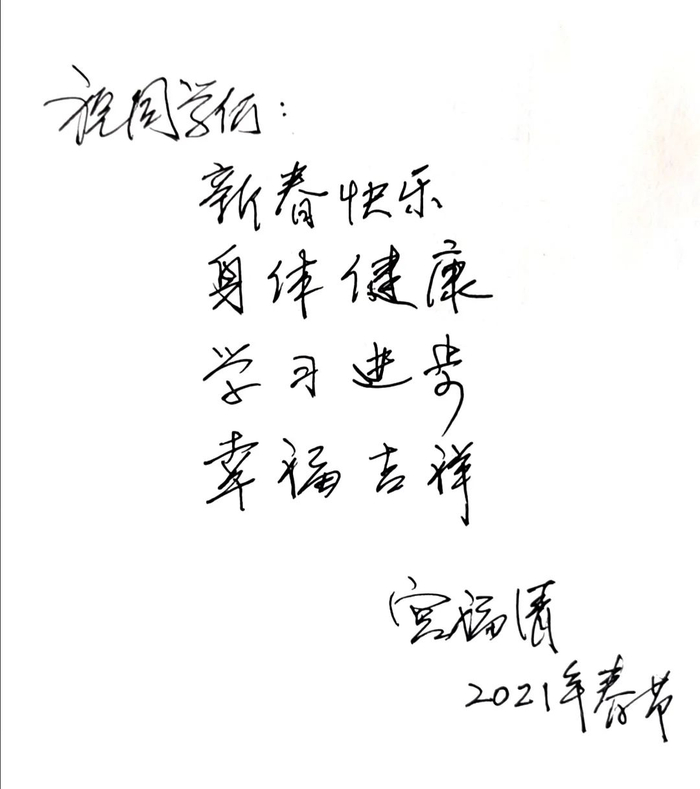 祝同学们：
新春快乐
身体健康
学习进步
幸福吉祥
宫福清
2021年春节